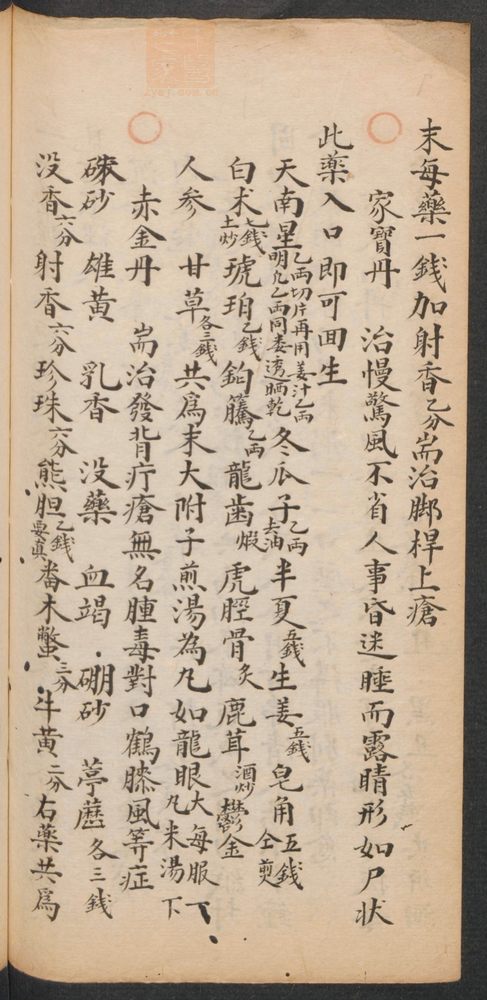 末每藥一錢加射香乙分耑治脚桿上瘡
家寶丹 治慢驚風不省人事昏迷睡而露睛形如尸状
此藥入口即可回生
天南星乙両切片再用姜汁乙両明凡乙両同煑透晒乾 冬瓜子乙両去油 半夏五錢 生姜五錢 皂角五錢仝煎
白术七錢土炒 琥珀乙錢 鈎藤乙両 龍歯煅 虎脛骨炙 鹿茸酒炒 鬱金
人參 甘草各三錢 共為末大附子煎湯為凡如龍眼大每服一凡米湯下
赤金丹 耑治發背疔瘡無名腫毒對口鶴膝風等症
硃砂 雄黄 乳香 没藥 血竭 硼砂 葶藶各三錢
没香六分 射香六分 珍珠六分 熊胆乙錢要真 番木蟞三分 牛黄二分 右藥共為